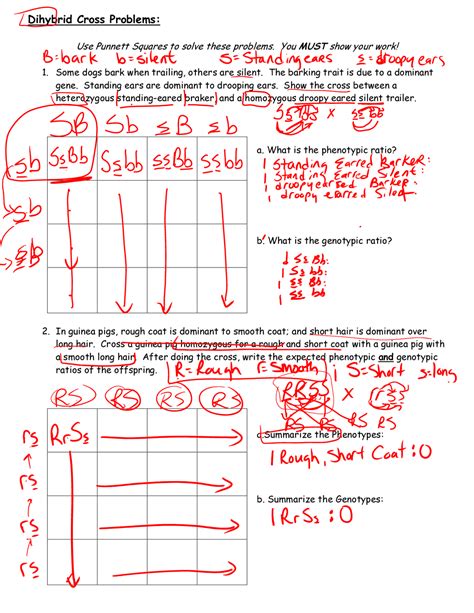 Dihybrid Cross Problems:
Use Punnett Squares to solve these problems. You MUST show your work!
B=bark b=silent S=Standing ears s=droopy ears
1. Some dogs bark when trailing, others are silent. The barking trait is due to a dominant
gene. Standing ears are dominant to drooping ears. Show the cross between a
heterozygous standing-eared braker and a homozygous droopy eared silent trailer.
SB Sb sB sb
x ssbb
sb SsBb Ssbb ssBb ssbb
sb
sb
a. What is the phenotypic ratio?
1 Standing Earred Barker:
1 Standing Earred Silent:
1 droopy earred Barker:
1 droopy earred Silent
b. What is the genotypic ratio?
1 SsBb:
1 Ssbb:
1 ssBb:
1 ssbb
2. In guinea pigs, rough coat is dominant to smooth coat; and short hair is dominant over
long hair. Cross a guinea pig homozygous for a rough and short coat with a guinea pig with
a smooth long hair. After doing the cross, write the expected phenotypic and genotypic
ratios of the offspring.
R=Rough r=Smooth S=Short s=long
RS RS RS RS
RRSS x rrss
RS RS RS RS
rs RrSs
rs
rs
rs
a. Summarize the Phenotypes:
1 Rough, Short Coat : 0
b. Summarize the Genotypes:
1 RrSs : 0